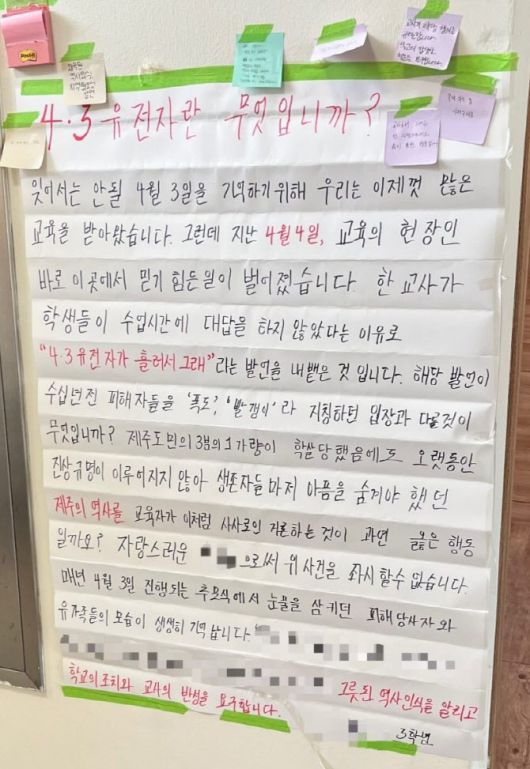 4·3 유전자란 무엇입니까?
잊어서는 안될 4월 3일을 기억하기위해 우리는 이제껏 많은
교육을 받아왔습니다. 그런데 지난 4월4일, 교육의 현장인
바로 이곳에서 믿기 힘든일이 벌어졌습니다 한 교사가
학생들이 수업시간에 대답을 하지 않았다는 이유로
"4·3유전자가 흘러서그래"라는 발언을 내뱉은 것 입니다. 해당 발언이
수십년전 피해자들을 '폭도', '빨갱이'라 지칭하던 입장과 다를것이
무엇입니까? 제주도민의 3분의 1 가량이 학살당했음에도 오랫동안
진상규명이 이루어지지 않아 생존자들마저 아픔을 숨겨야 했던
제주의 역사를 교육자가 이처럼 사사로이 거론하는것이 과연 옳은 행동
일까요? 자랑스러운 으로써 위 사건을 좌시 할수 없습니다.
매년 4월 3일 진행되는 추모식에서 눈물을 삼키던 피해당사자와
유가족들의 모습이 생생히 기억납니다.
그릇된 역사인식을 알리고
학교의조치와 교사의 반성을 요구합니다.
3학년